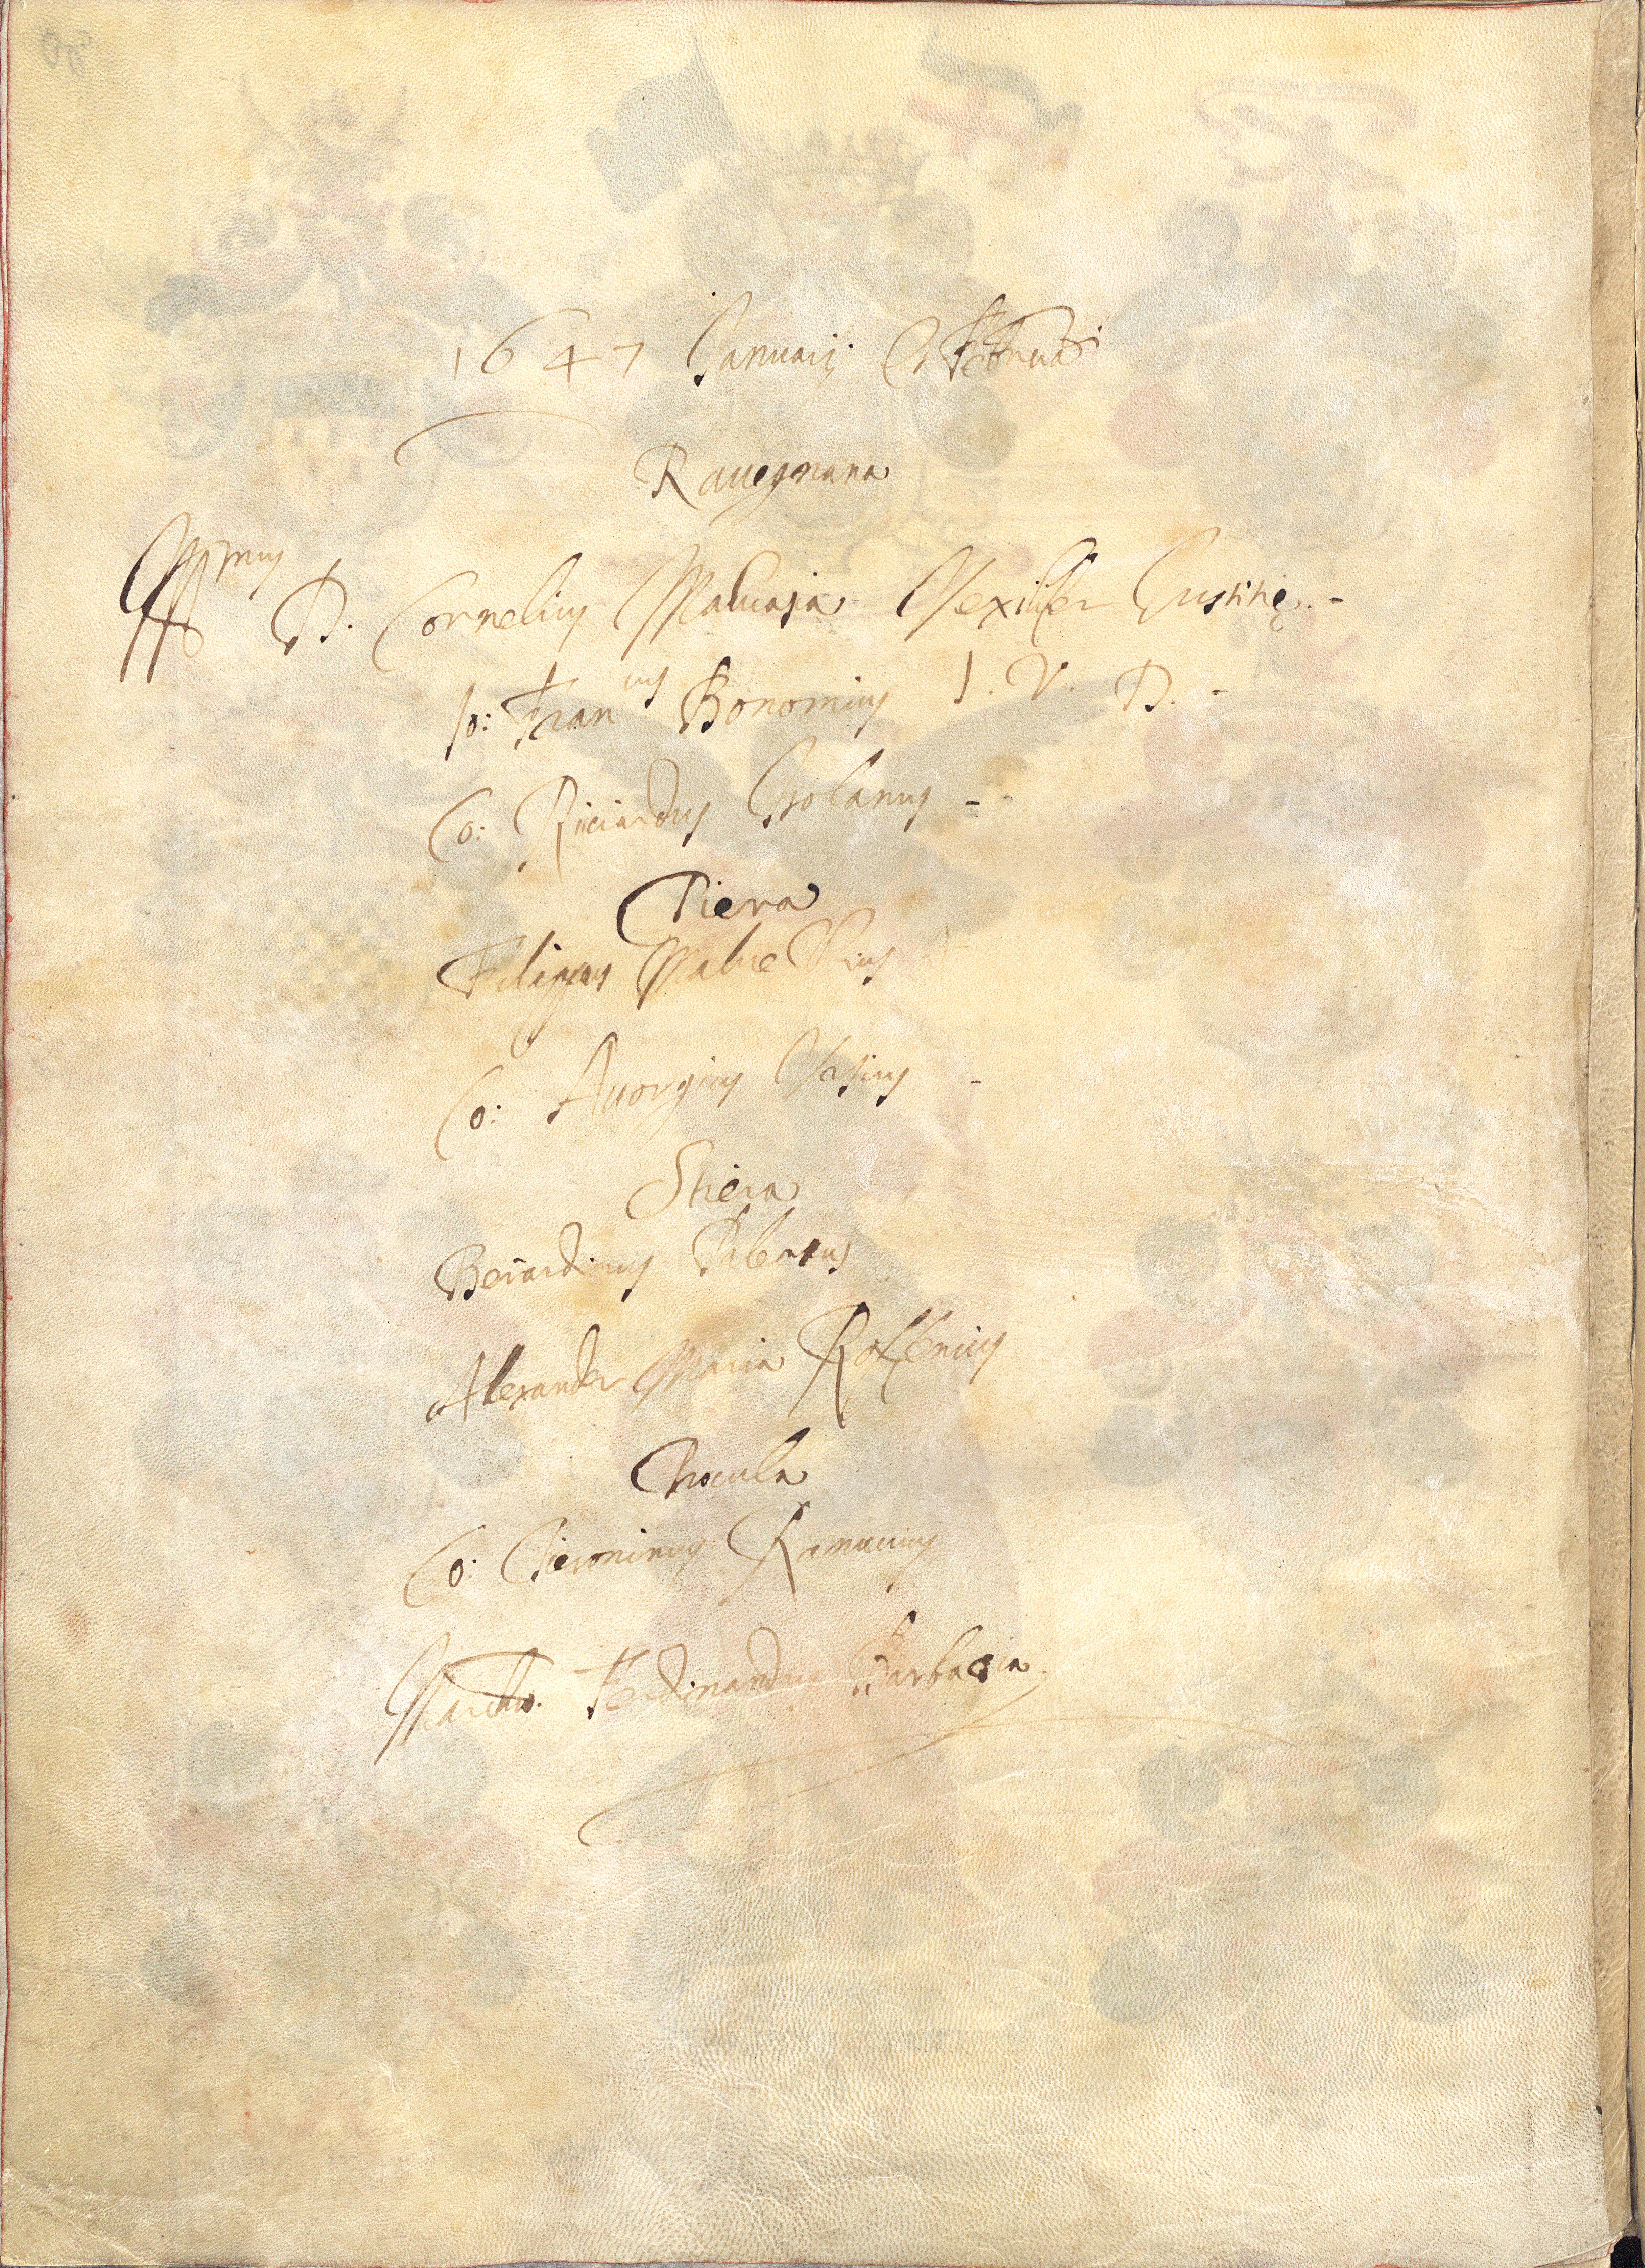 1647 Januarij et Februarij
Ravegnana
Illmus D. Cornelius Malvasia Vexilifer Iustitię. -
Io: Francus Bonomius I. V. D. -
Co: Riciardus Isolanus - -
Piera
Filippus Malvezzius
Co: Astorgius -
Stiera
Bernardinus
Alexander Maria Roffenius
Procula
Co: Hieronimus Ranuccius
Marchio. Ferdinandus Barbacia.